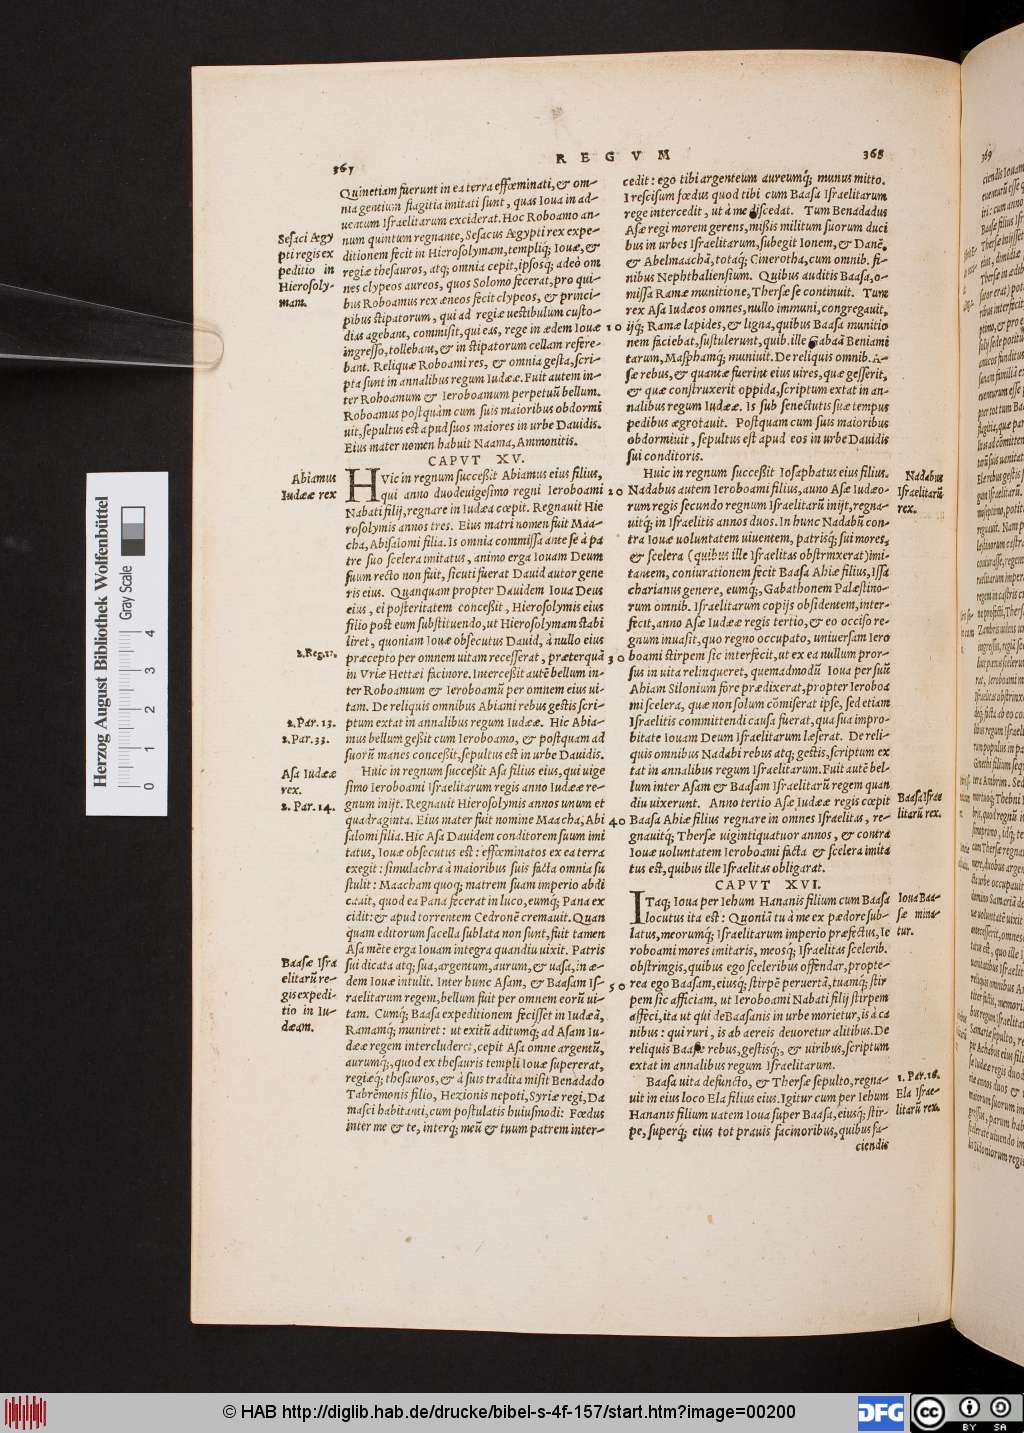 367
REGVM
368
Quinetiam fuerunt in ea terra effœminati, & om-
nia gentium flagitia imitati sunt, quas Ioua in ad-
uentum Israelitarum exciderat. Hoc Roboamo an-
num quintum regnante, Sesacus Ægypti rex expe-
ditionem fecit in Hierosolymam, templiq; Iouæ, &
regiæ thesauros, atq; omnia cepit, ipsosq; adeò om
nes clypeos aureos, quos Solomo fecerat, pro qui-
bus Roboamus rex æneos fecit clypeos, & princi-
pibus stipatorum, qui ad regiæ uestibulum custo-
dias agebant, commisit, qui eas, rege in ædem Iouæ
ingresso, tollebant, & in stipatorum cellam refere-
bant. Reliquæ Roboami res, & omnia gesta, scri-
pta sunt in annalibus regum Iudææ. Fuit autem in-
ter Roboamum & Ieroboamum perpetuũ bellum.
Roboamus postquàm cum suis maioribus obdormi
uit, sepultus est apud suos maiores in urbe Dauidis.
Eius mater nomen habuit Naama, Ammonitis.
CAPVT XV.
HVic in regnum successit Abiamus eius filius,
qui anno duodeuigesimo regni Ieroboami
Nabati filij, regnare in Iudæa cœpit. Regnauit Hie
rosolymis annos tres. Eius matri nomen fuit Maa-
cha, Abisalomi filia. Is omnia commissa ante se à pa
tre suo scelera imitatus, animo erga Iouam Deum
suum recto non fuit, sicuti fuerat Dauid autor gene
ris eius. Quanquam propter Dauidem Ioua Deus
eius, ei posteritatem concessit, Hierosolymis eius
filio post eum substituendo, ut Hierosolymam stabi
liret, quoniam Iouæ obsecutus Dauid, à nullo eius
præcepto per omnem uitam recesserat, præterquã
in Vriæ Hettæi facinore. Intercessit autẽ bellum in-
ter Roboamum & Ieroboamũ per omnem eius ui-
tam. De reliquis omnibus Abiami rebus gestis scri-
ptum extat in annalibus regum Iudææ. Hic Abia-
mus bellum gessit cum Ieroboamo, & postquam ad
suorũ manes concessit, sepultus est in urbe Dauidis.
Huic in regnum successit Asa filius eius, qui uige
simo Ieroboami Israelitarum regis anno Iudææ re-
gnum inijt. Regnauit Hierosolymis annos unum et
quadraginta. Eius mater fuit nomine Maacha, Abi
salomi filia. Hic Asa Dauidem conditorem suum imi
tatus, Iouæ obsecutus est: effœminatos ex ea terra
exegit: simulachra à maioribus suis facta omnia su
stulit: Maacham quoq; matrem suam imperio abdi
cauit, quod ea Pana fecerat in luco, eumq; Pana ex
cidit: & apud torrentem Cedronẽ cremauit. Quan
quam editorum sacella sublata non sunt, fuit tamen
Asa mẽte erga Iouam integra quandiu uixit. Patris
sui dicata atq; sua, argentum, aurum, & uasa, in æ-
dem Iouæ intulit. Inter hunc Asam, & Baasam Is-
raelitarum regem, bellum fuit per omnem eorũ ui-
tam. Cumq; Baasa expeditionem fecisset in Iudæã,
Ramamq; muniret: ut exitũ aditumq; ad Asam Iu-
dææ regem intercluderet, cepit Asa omne argentũ,
aurumq;, quod ex thesauris templi Iouæ supererat,
regiæq; thesauros, & à suis tradita misit Benadado
Tabrẽmonis filio, Hezionis nepoti, Syriæ regi, Da
masci habitanti, cum postulatis huiusmodi: Fœdus
inter me & te, interq; meũ & tuum patrem inter-
Sesaci Ægy
pti regis ex
peditio in
Hierosoly-
mam.
Abiamus
Iudææ rex
2. Reg. 11.
2. Par. 13.
2. Par. 33.
Asa Iudææ
rex.
2. Par. 14.
Baasæ Isra
elitarũ re-
gis expedi-
tio in Iu-
dæam.
10
20
30
40
50
cedit: ego tibi argenteum aureumq; munus mitto.
I rescisum fœdus quod tibi cum Baasa Israelitarum
rege intercedit, ut à me discedat. Tum Benadadus
Asæ regi morem gerens, missis militum suorum duci
bus in urbes Israelitarum, subegit Ionem, & Danẽ,
& Abelmaachã, totaq; Cinerotha, cum omnib. fi-
nibus Nephthaliensium. Quibus auditis Baasa, o-
missa Ramæ munitione, Thersæ se continuit. Tum
rex Asa Iudæos omnes, nullo immuni, congregauit,
ijq; Ramæ lapides, & ligna, quibus Baasa munitio
nem faciebat, sustulerunt, quib. ille Gabaã Beniami
tarum, Masphamq; muniuit. De reliquis omnib. A-
sæ rebus, & quantæ fuerint eius uires, quæ gesserit,
& quæ construxerit oppida, scriptum extat in an-
nalibus regum Iudææ. Is sub senectutis suæ tempus
pedibus ægrotauit. Postquam cum suis maioribus
obdormiuit, sepultus est apud eos in urbe Dauidis
sui conditoris.
Huic in regnum successit Iosaphatus eius filius.
Nadabus autem Ieroboami filius, anno Asæ Iudæo-
rum regis secundo regnum Israelitarũ inijt, regna-
uitq; in Israelitis annos duos. In hunc Nadabũ con-
tra Iouæ uoluntatem uiuentem, patrisq; sui mores,
& scelera (quibus ille Israelitas obstrinxerat) imi-
tantem, coniurationem fecit Baasa Ahiæ filius, Issa
charianus genere, eumq;, Gabathonem Palæstino-
rum omnib. Israelitarum copijs obsidentem, inter-
fecit, anno Asæ Iudææ regis tertio, & eo occiso re-
gnum inuasit, quo regno occupato, uniuersam Iero
boami stirpem sic interfecit, ut ex ea nullum pror-
sus in uita relinqueret, quemadmodũ Ioua per suũ
Ahiam Silonium fore prædixerat, propter Ieroboa
mi scelera, quæ non solum cõmiserat ipse, sed etiam
Israelitis committendi causa fuerat, qua sua impro-
bitate Iouam Deum Israelitarum læserat. De reli-
quis omnibus Nadabi rebus atq; gestis, scriptum ex
tat in annalibus regum Israelitarum. Fuit autẽ bel-
lum inter Asam & Baasam Israelitarũ regem quan
diu uixerunt. Anno tertio Asæ Iudææ regis cœpit
Baasa Ahiæ filius regnare in omnes Israelitas, re-
gnauitq; Thersæ uigintiquatuor annos, & contra
Iouæ uoluntatem Ieroboami facta & scelera imita
tus est, quibus ille Israelitas obligarat.
CAPVT XVI.
ITaq; Ioua per Iehum Hananis filium cum Baasa
locutus ita est: Quoniã tu à me ex pædore sub-
latus, meorumq; Israelitarum imperio præfectus, Ie
roboami mores imitaris, meosq; Israelitas scelerib.
obstringis, quibus ego sceleribus offendar, propte-
rea ego Baasam, eiusq; stirpẽ peruertã, tuamq; stir
pem sic afficiam, ut Ieroboami Nabati filij stirpem
affeci, ita ut qui de Baasanis in urbe morietur, is à ca
nibus: qui ruri, is ab aereis deuoretur alitibus. De
reliquis Baasæ rebus, gestisq;, & uiribus, scriptum
extat in annalibus regum Israelitarum.
Baasa uita defuncto, & Thersæ sepulto, regna-
uit in eius loco Ela filius eius. Igitur cum per Iehum
Hananis filium uatem Ioua super Baasa, eiusq; stir-
pe, superq; eius tot prauis facinoribus, quibus fa-
ciendis
Nadabus
Israelitarũ
rex.
Baasa Israe
litarũ rex.
Ioua Baa-
sæ mina-
tur.
1. Par. 16.
Ela Israe-
litarũ rex.
369
Herzog August Bibliothek Wolfenbüttel
Gray Scale
0 1 2 3 4
© HAB http://diglib.hab.de/drucke/bibel-s-4f-157/start.htm?image=00200
DFG
cc
BY SA